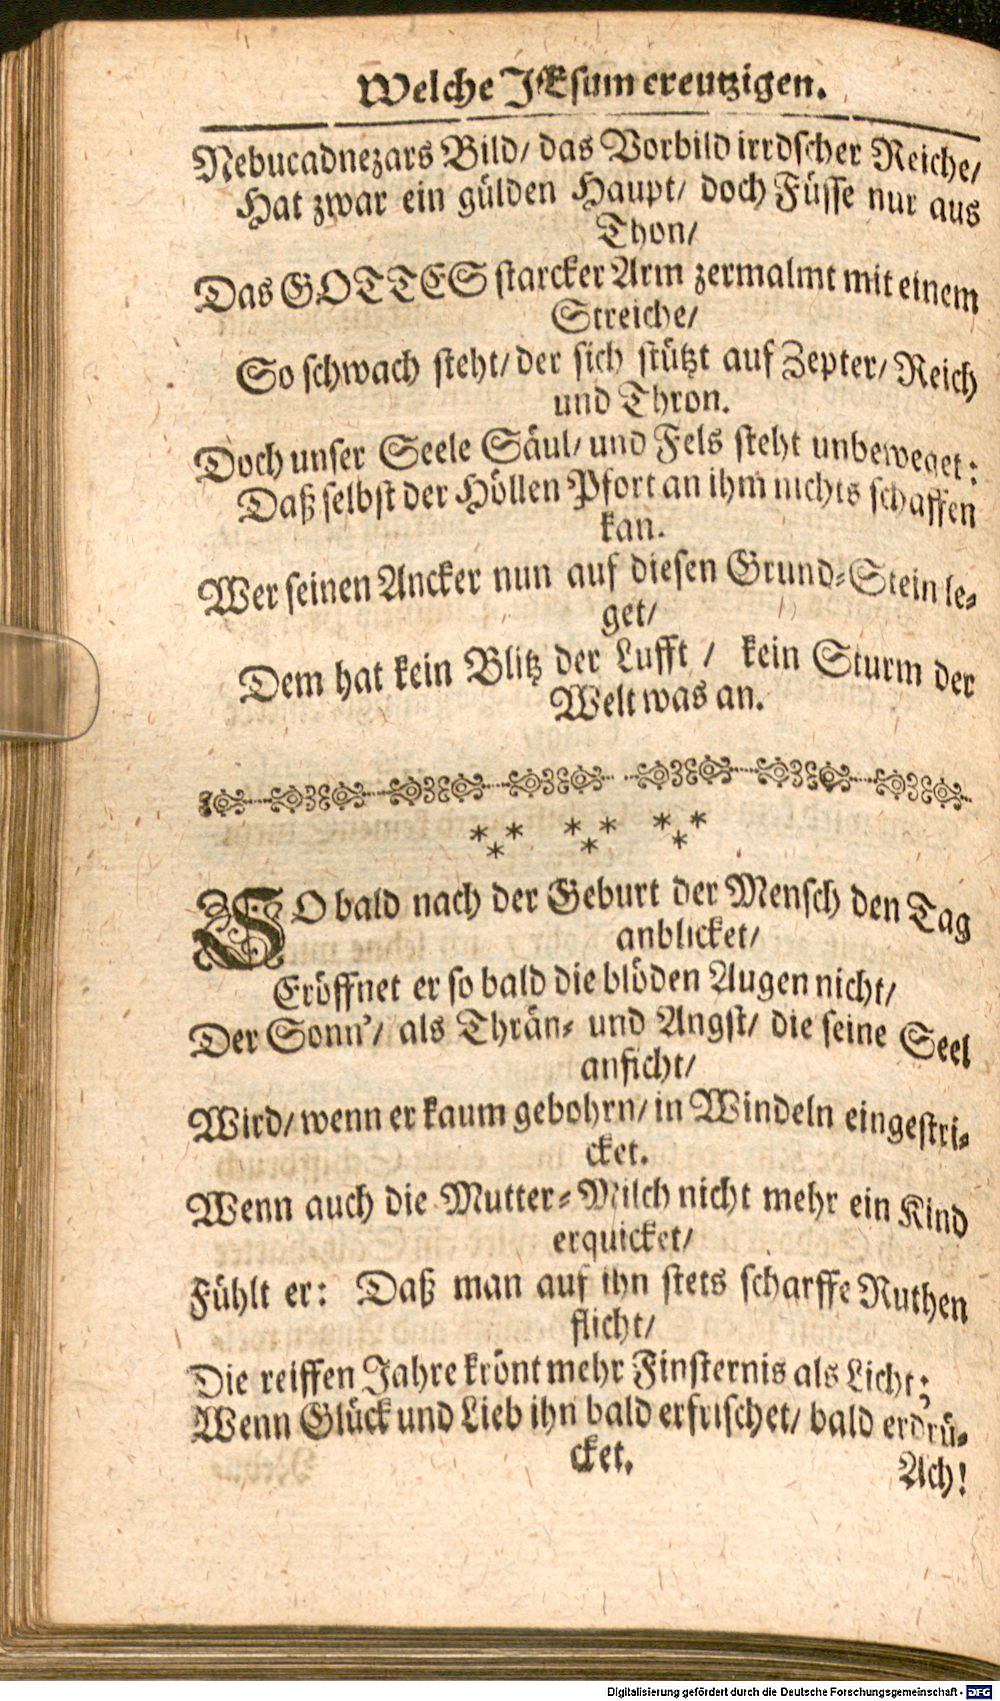 Welche JEsum creutzigen.
Nebucadnezars Bild/ das Vorbild irrdscher Reiche/
Hat zwar ein gülden Haupt/ doch Füsse nur aus
Thon/
Das GOTTES starcker Arm zermalmt mit einem
Streiche/
So schwach steht/ der sich stützt auf Zepter/ Reich
und Thron.
Doch unser Seele Säul/ und Fels steht unbeweget:
Daß selbst der Höllen Pfort an ihm nichts schaffen
kan.
Wer seinen Ancker nun auf diesen Grund-Stein le-
get/
Dem hat kein Blitz der Lufft / kein Sturm der
Welt was an.
* * * * * * * * *
SO bald nach der Geburt der Mensch den Tag
anblicket/
Eröffnet er so bald die blöden Augen nicht/
Der Sonn'/ als Thrän- und Angst/ die seine Seel
anficht/
Wird/ wenn er kaum gebohrn/ in Windeln eingestri-
cket.
Wenn auch die Mutter-Milch nicht mehr ein Kind
erquicket/
Fühlt er: Daß man auf ihn stets scharffe Ruthen
flicht/
Die reiffen Jahre krönt mehr Finsternis als Licht;
Wenn Glück und Lieb ihn bald erfrischet/ bald erdrü-
cket.
Ach!
Digitalisierung gefördert durch die Deutsche Forschungsgemeinschaft - DFG